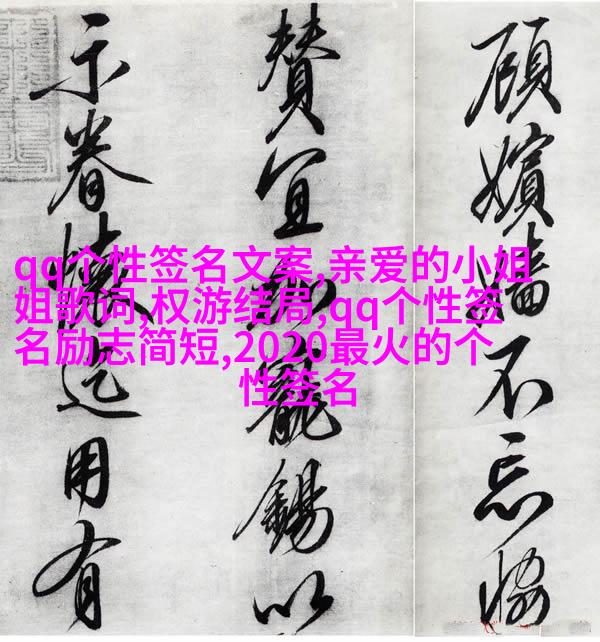 qq个性签名文案,亲爱的小姐
姐歌词,权游结局,qq个性签
名励志简短,2020最火的个
性签名
顧嬪嬙不忘恊
賛宜寵錫以
示眷懷迄用有